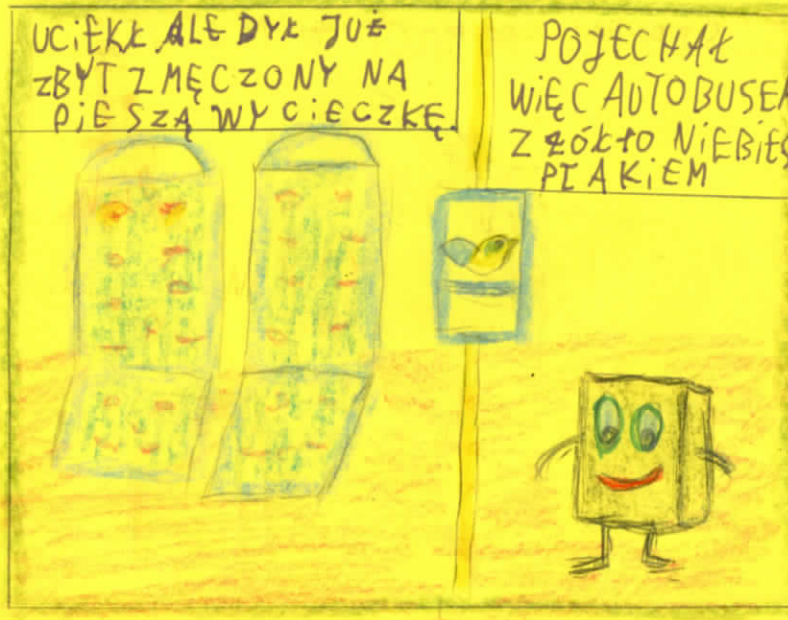 UCiEKŁ ALE DYŁ JUŻ
ZBYT ZMĘCZONY NA
PiESZĄ WYCiECZKĘ.
POJECHAŁ
WiĘC AUTOBUSEM
Z ŻÓŁTO NiEBiES
PTAKiEM